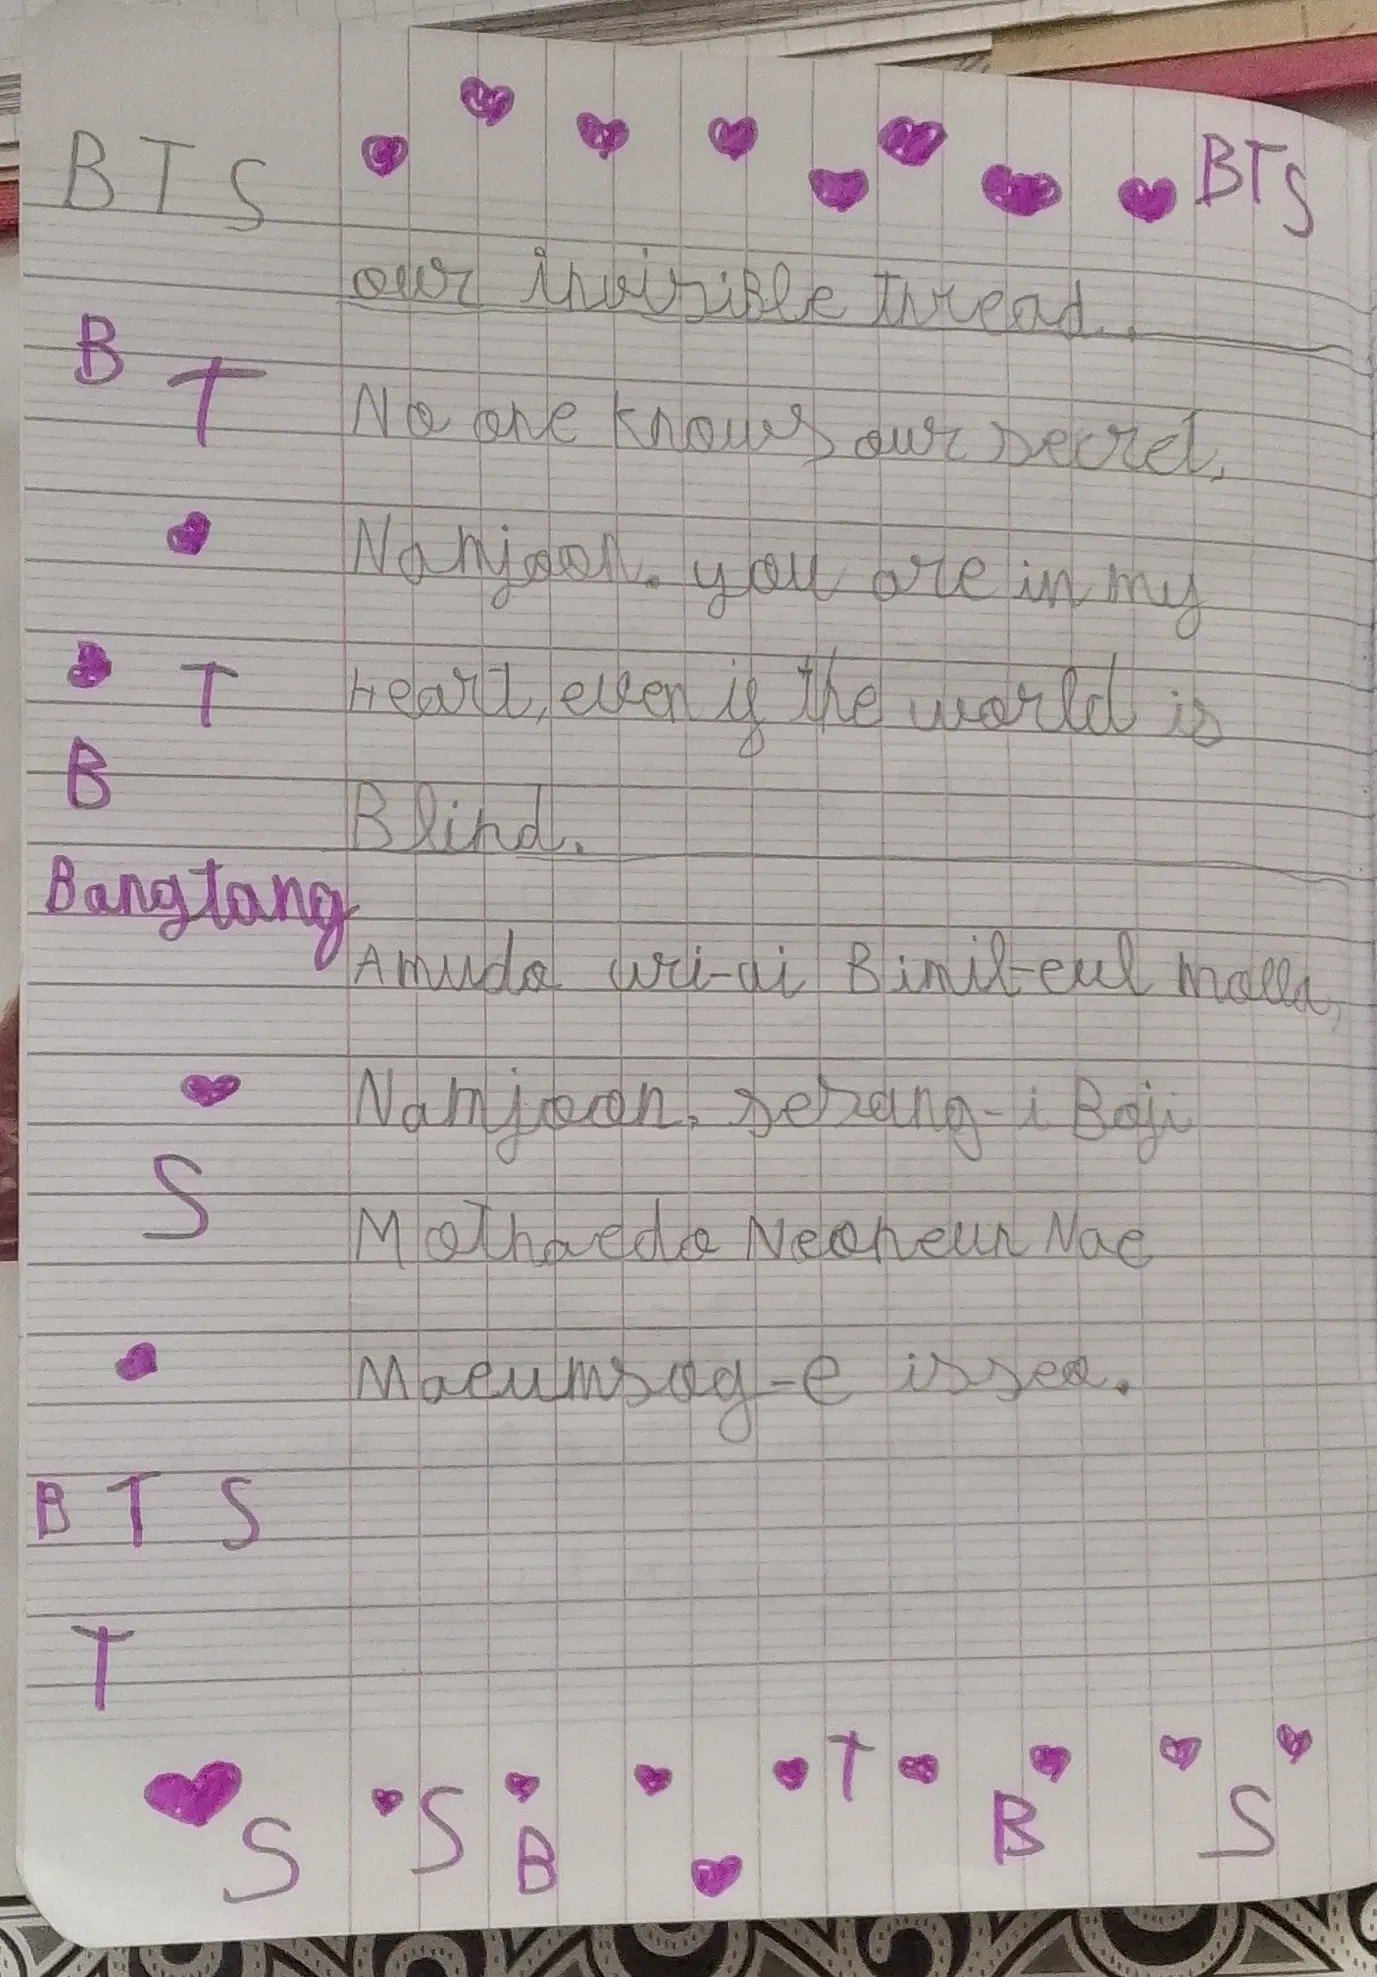 BTS BTS
our invisible thread.
B T
No one knows our secret,
Namjoon. you are in my
T Heart, even if the world is
B
Blind.
Bangtang
Amudo uri-ui Bimil-eul molla,
Namjoon, sesang-i Boji
S
Mothaedo Neoneun Nae
Maeumsog-e isseo.
BTS
T
S S B T B S